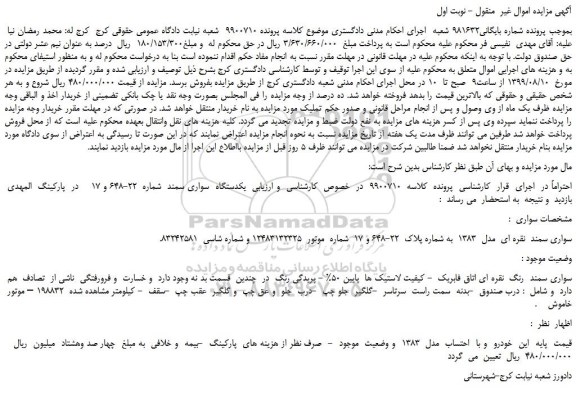 آگهی مزایده اموال غیر منقول - نوبت اول
بموجب پرونده شماره بایگانی ۹۸۱۶۳۲ شعبه اجرای احکام مدنی دادگستری موضوع کلاسه پرونده ۹۹۰۰۷۱۰ شعبه نیابت دادگاه عمومی حقوقی کرج کرج له: محمد رمضان نیا
علیه: آقای مهدی نفیسی فر محکوم علیه محکوم است به پرداخت مبلغ ۳/۶۳۰/۶۶۰/۰۰۰ ریال در حق محکوم له و مبلغ ۱۸۰/۱۵۳/۳۰۰ ریال درصد به عنوان نیم عشر دولتی در
حق صندوق دولت. با توجه به اینکه محکوم علیه در مهلت قانونی در مهلت مقرر نسبت به انجام مفاد حکم اقدام ننموده است بنا به درخواست محکوم له و به منظور استیفای محکوم
به و هزینه های اجرایی اموال متعلق به محکوم علیه از سوی این اجرا توقیف و توسط کارشناسی دادگستری کرج بشرح ذیل توصیف و ارزیابی شده و مقرر گردیده از طریق مزایده در
مورخ ۱۳۹۹/۰۸/۱۰ از ساعت ۹ صبح تا ۱۰ در محل اجرای احکام مدنی شعبه دادگستری کرج از طریق مزایده بفروش برسد. مزایده از قیمت ۴۸۰/۰۰۰/۰۰۰ ریال شروع و به هر
شخص حقیقی و حقوقی که بالاترین قیمت را بدهد فروخته خواهد شد. ده درصد از وجه مزایده را فی المجلس بصورت وجه نقد یا چک بانکی تضمینی از خریدار اخذ و الباقی وجه
مزایده ظرف یک ماه از وی وصول و پس از انجام مراحل قانونی و صدور حکم تملیک مورد مزایده به نام خریدار منتقل خواهد شد. در صورتی که در مهلت مقرر خریدار وجه مزایده
را پرداخت ننماید سپرده وی پس از کسر هزینه های مزایده به نفع دولت ضبط و مزایده تجدید می گردد. کلیه هزینه های نقل وانتقال بعهده محکوم علیه است که از محل فروش
پرداخت خواهد شد طرفین می توانند ظرف مدت یک هفته از تاریخ مزایده نسبت به نحوه انجام مزایده اعتراض نمایند که در این صورت تا رسیدگی به اعتراض از سوی دادگاه مورد
مزایده بنام خریدار منتقل نخواهد شد ضمنا طالبین شرکت در مزایده می توانند ظرف ۵ روز قبل از مزایده بااطلاع این اجرا از مال مورد مزایده بازدید نمایند.
مال مورد مزایده و بهای آن طبق نظر کارشناس بدین شرح است:
احتراماً در اجرای قرار کارشناسی پرونده کلاسه ۹۹۰۰۷۱۰ در خصوص کارشناسی و ارزیابی یکدستگاه سواری سمند شماره ۲۲-۶۴۸ و ۱۷ در پارکینگ المهدی
بازدید و نتیجه به استحضار می رساند :
مشخصات سواری :
سواری سمند نقره ای مدل ۱۳۸۳ به شماره پلاک ۲۲-۶۴۸ و ۱۷ شماره موتور ۱۲۴۸۳۱۳۲۳۲۵ و شماره شاسی ۸۳۲۴۲۵۸۱.
وضعیت موجود :
سواری سمند رنگ نقره ای اتاق فابریک - کیفیت لاستیک ها پایین ۵۰% - پرندگی رنگ در چندین قسمت بد نه وجود دارد و خسارت و فرورفتگی ناشی از تصادف هم
دارد و شامل : درب صندوق -بدنه سمت راست سرتاسر -گلگیر جلو چپ -درب جلو و عقب چپ و گلگیر عقب چپ -سقف - کیلومتر مشاهده شده ۱۹۸۸۳۲ – موتور
خاموش .
اظهار نظر :
قیمت پایه این خودرو و با احتساب مدل ۱۳۸۳ و وضعیت موجود - صرف نظر از هزینه های پارکینگ -بیمه و خلافی به مبلغ چهار صد وهشتاد میلیون ریال
۴۸۰/۰۰۰/۰۰۰ ریال تعیین می گردد
دادورز شعبه نیابت کرج-شهرستانی